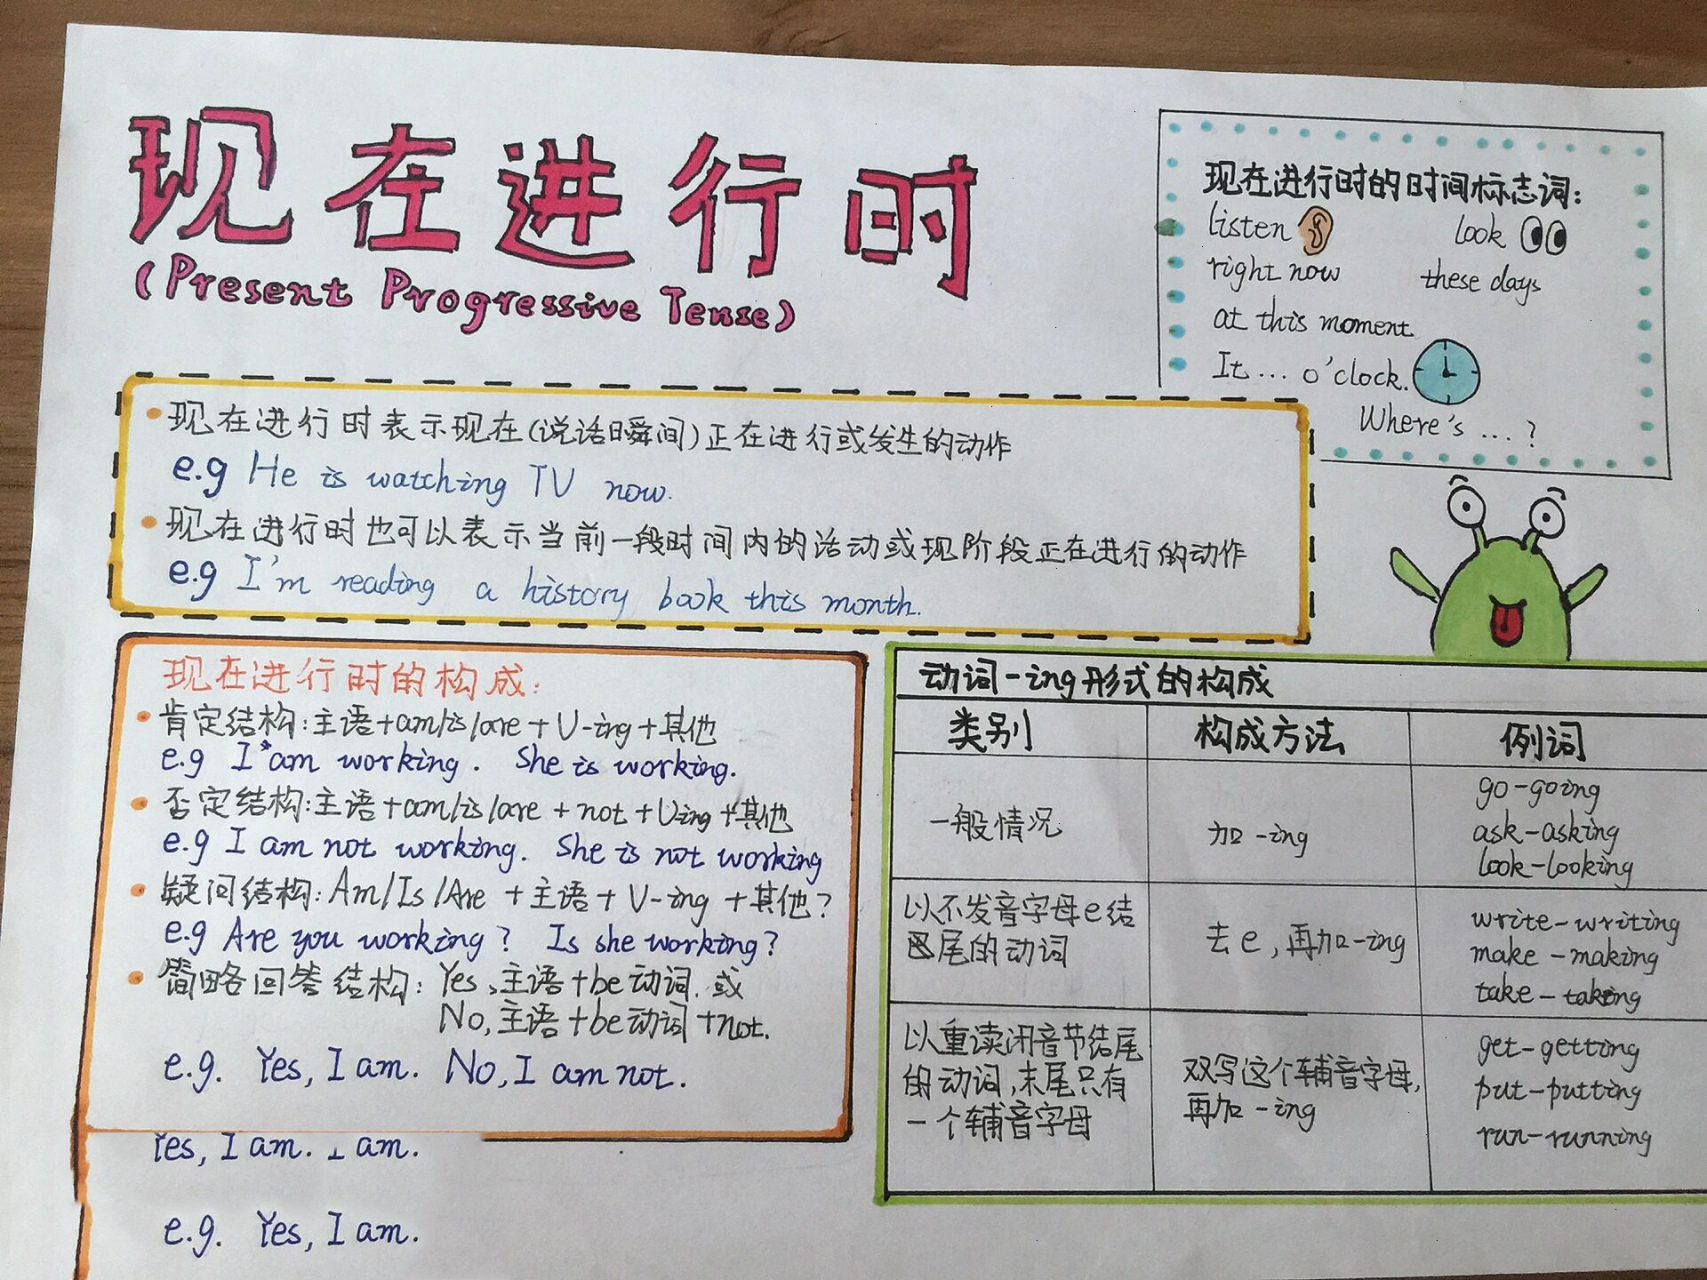 现在进行时
(Present Progressive Tense)
现在进行时的时间标志词:
listen look
right now these days
at this moment
It ... o'clock.
Where's ... ?
现在进行时表示现在(说话瞬间)正在进行或发生的动作
e.g He is watching TV now.
现在进行时也可以表示当前一段时间内的活动或现阶段正在进行的动作
e.g I'm reading a history book this month.
现在进行时的构成:
肯定结构:主语+am/is/are+V-ing+其他
e.g I am working. She is working.
否定结构:主语+am/is/are+not+V-ing+其他
e.g I am not working. She is not working
疑问结构:Am/Is/Are+主语+V-ing+其他?
e.g Are you working? Is she working?
简略回答结构:Yes,主语+be动词.或
No,主语+be动词+not.
e.g. Yes, I am. No, I am not.
Yes, I am. I am.
e.g. Yes, I am.
动词-ing形式的构成
类别 构成方法 例词
一般情况 加-ing
go-going
ask-asking
look-looking
以不发音字母e结
尾的动词
去e,再加-ing
write-writing
make-making
take-taking
以重读闭音节结尾
的动词,末尾只有
一个辅音字母
双写这个辅音字母,
再加-ing
get-getting
put-putting
run-running